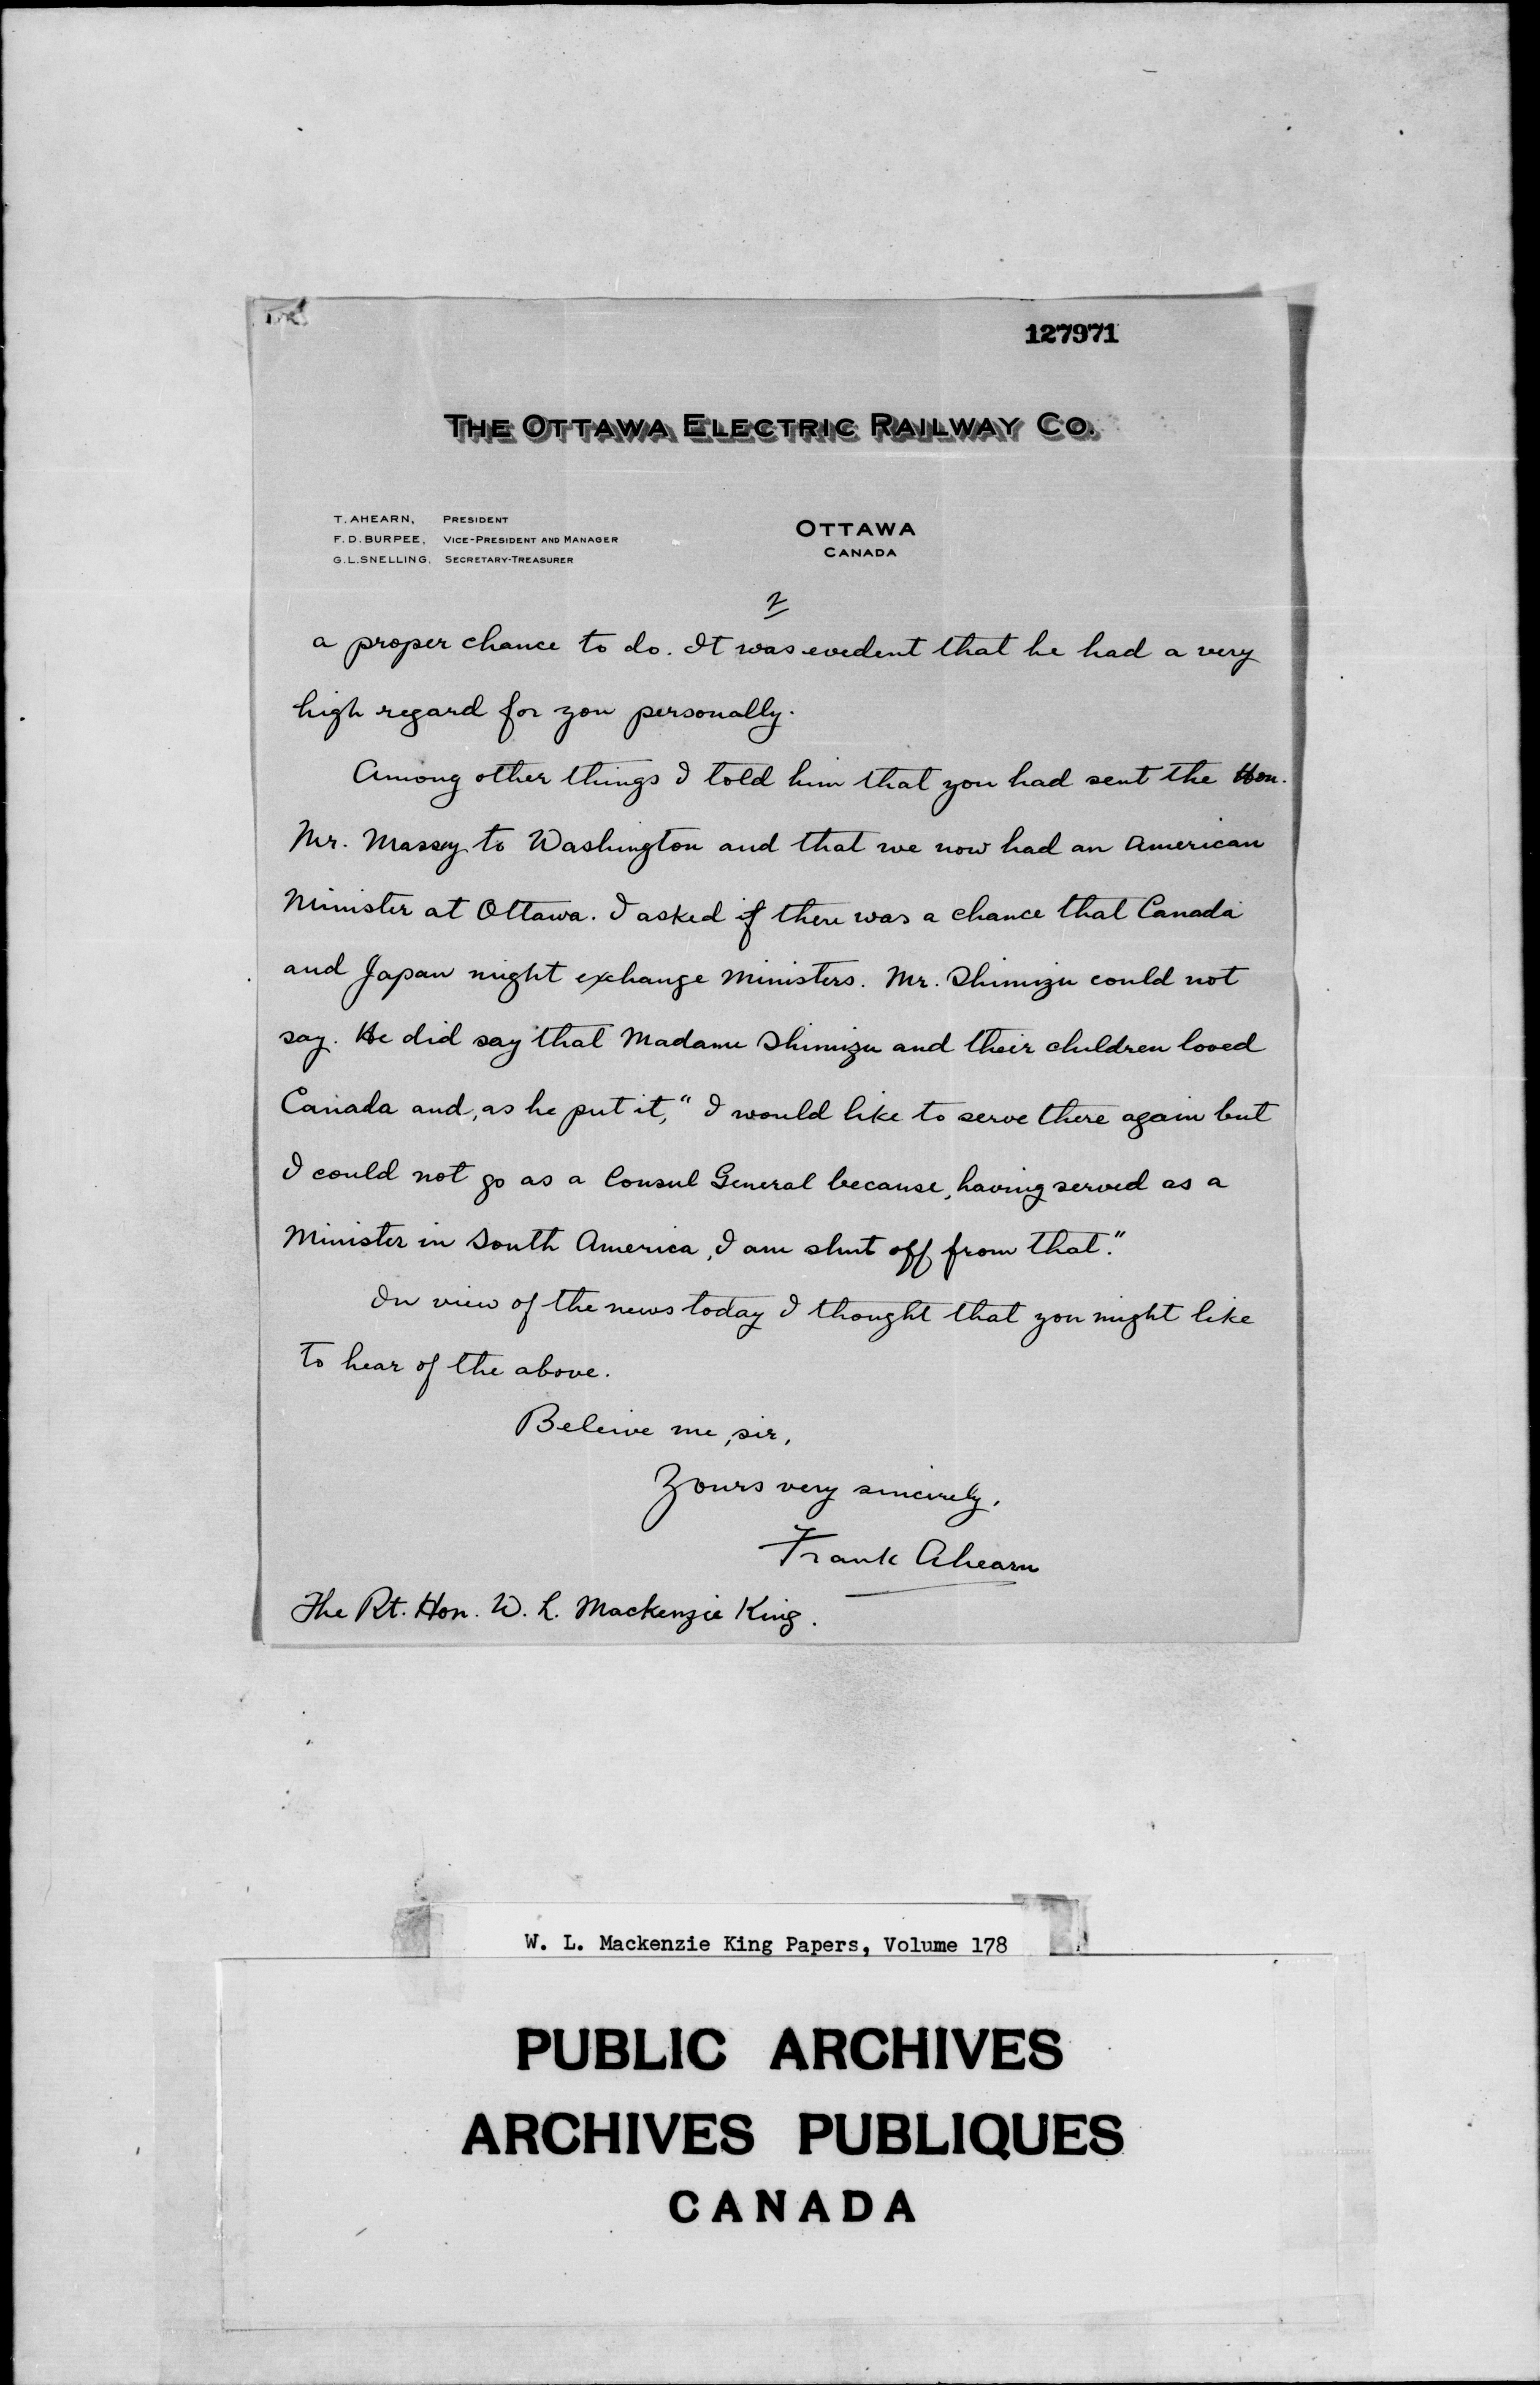 127971
THE OTTAWA ELECTRIC RAILWAY CO.
T. AHEARN, PRESIDENT
F. D. BURPEE, VICE-PRESIDENT AND MANAGER
G. L. SNELLING, SECRETARY-TREASURER
OTTAWA
CANADA
2
a proper chance to do. It was evedent that he had a very
high regard for you personally.
Among other things I told him that you had sent the Hon.
Mr. Massey to Washington and that we now had an American
Minister at Ottawa. I asked if there was a chance that Canada
and Japan might exchange Ministers. Mr. Shimizu could not
say. He did say that Madame Shimizu and their children loved
Canada and, as he put it, "I would like to serve there again but
I could not go as a Consul General because, having served as a
Minister in South America, I am shut off from that."
In view of the news today I thought that you might like
to hear of the above.
Beleive me, sir,
Yours very sincerely,
Frank Ahearn
The Rt. Hon. W. L. Mackenzie King.
W. L. Mackenzie King Papers, Volume 178
PUBLIC ARCHIVES
ARCHIVES PUBLIQUES
CANADA